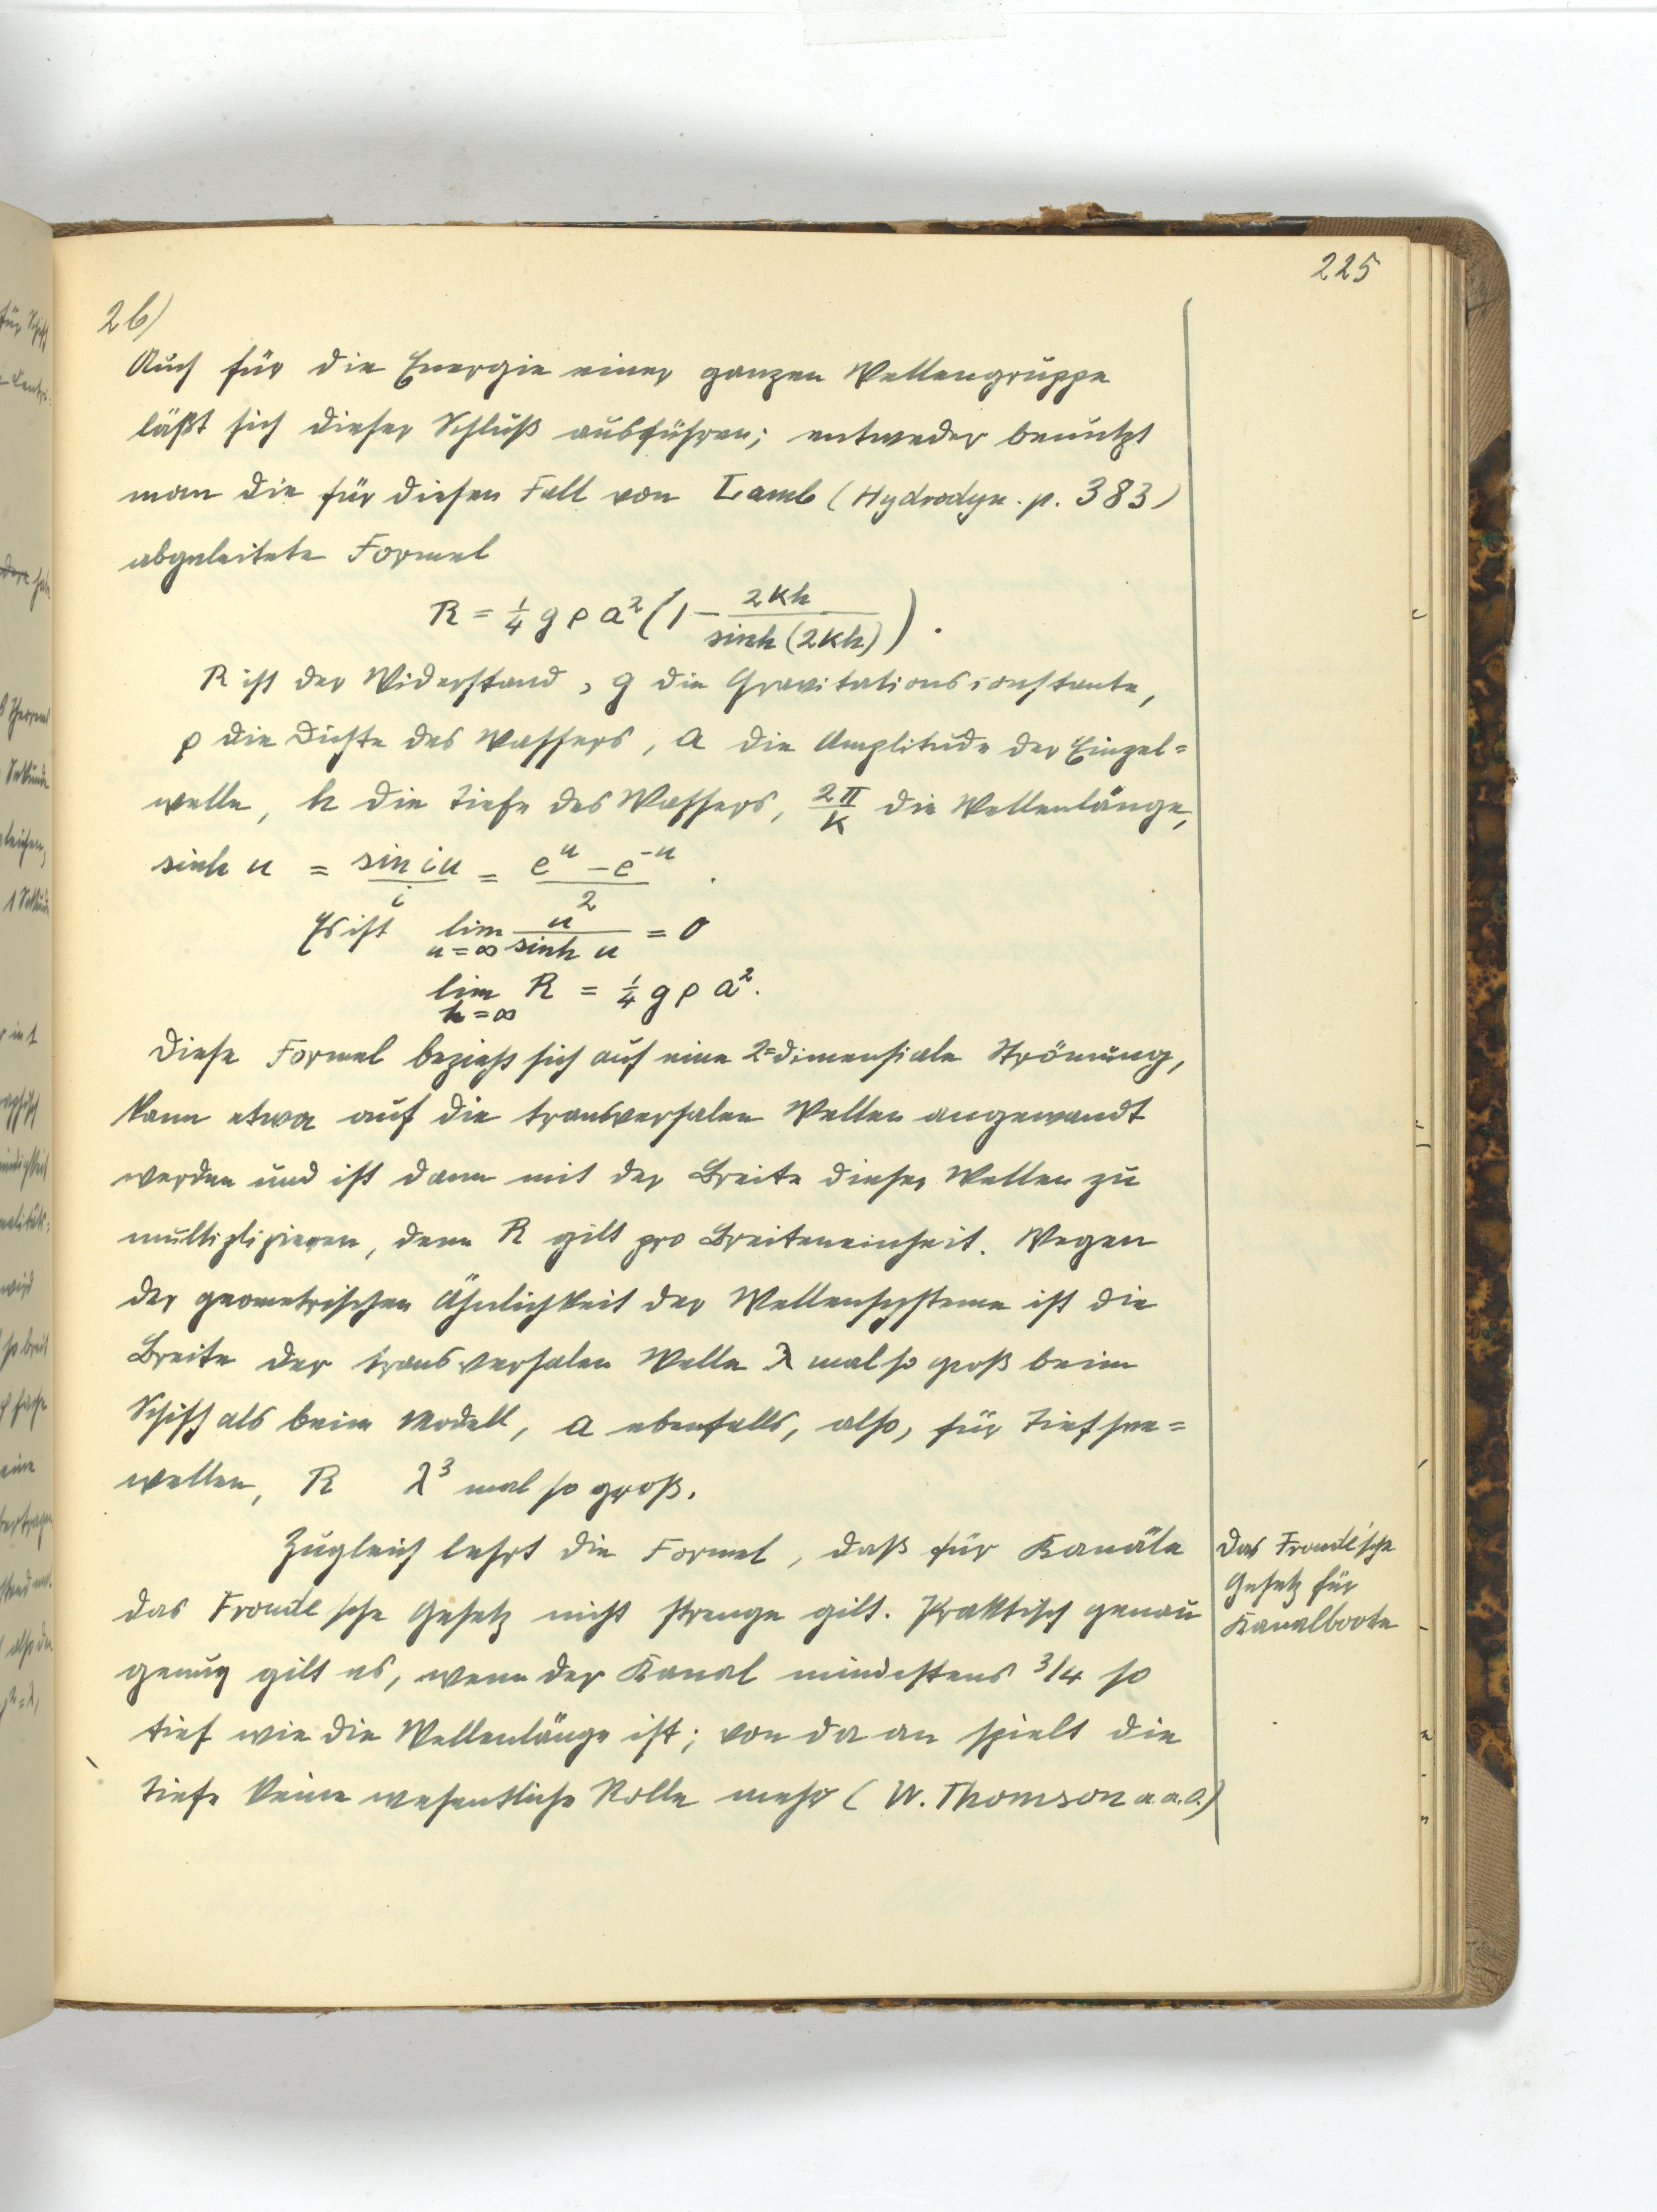 225
2b)
Auch für die Energie einer ganzen Wellengruppe
läßt sich dieser Schluß ausführen; entweder benutzt
man die für diesen Fall von Lamb (Hydrodyn. p. 383)
abgeleitete Formel
R = 1/4 g ρ a² (1 − 2kh / sinh(2kh)).
R ist der Widerstand, g die Gravitationsconstante,
ρ die Dichte des Wassers, a die Amplitude der Einzel=
welle, h die Tiefe des Wassers, 2π/k die Wellenlänge,
sinh u = sin iu / i = (e^u − e^−u) / 2.
Es ist lim u=∞ u / sinh u = 0
lim h=∞ R = 1/4 g ρ a².
Diese Formel bezieht sich auf eine 2=dimensiale Strömung,
kann etwa auf die transversalen Wellen angewandt
werden und ist dann mit der Breite dieser Wellen zu
multiplizieren, denn R gilt pro Breiteneinheit. Wegen
der geometrischen Ähnlichkeit der Wellensysteme ist die
Breite der transversalen Welle λ mal so groß beim
Schiff als beim Modell, a ebenfalls, also, für Tiefsee=
wellen, R λ³ mal so groß.
Zugleich lehrt die Formel, daß für Kanäle
das Froude'sche Gesetz nicht strenge gilt. Praktisch genau
genug gilt es, wenn der Kanal mindestens 3/4 so
tief wie die Wellenlänge ist; von da an spielt die
Tiefe keine wesentliche Rolle mehr (W. Thomson a.a.O.)
Das Froude'sche
Gesetz für
Kanalboote